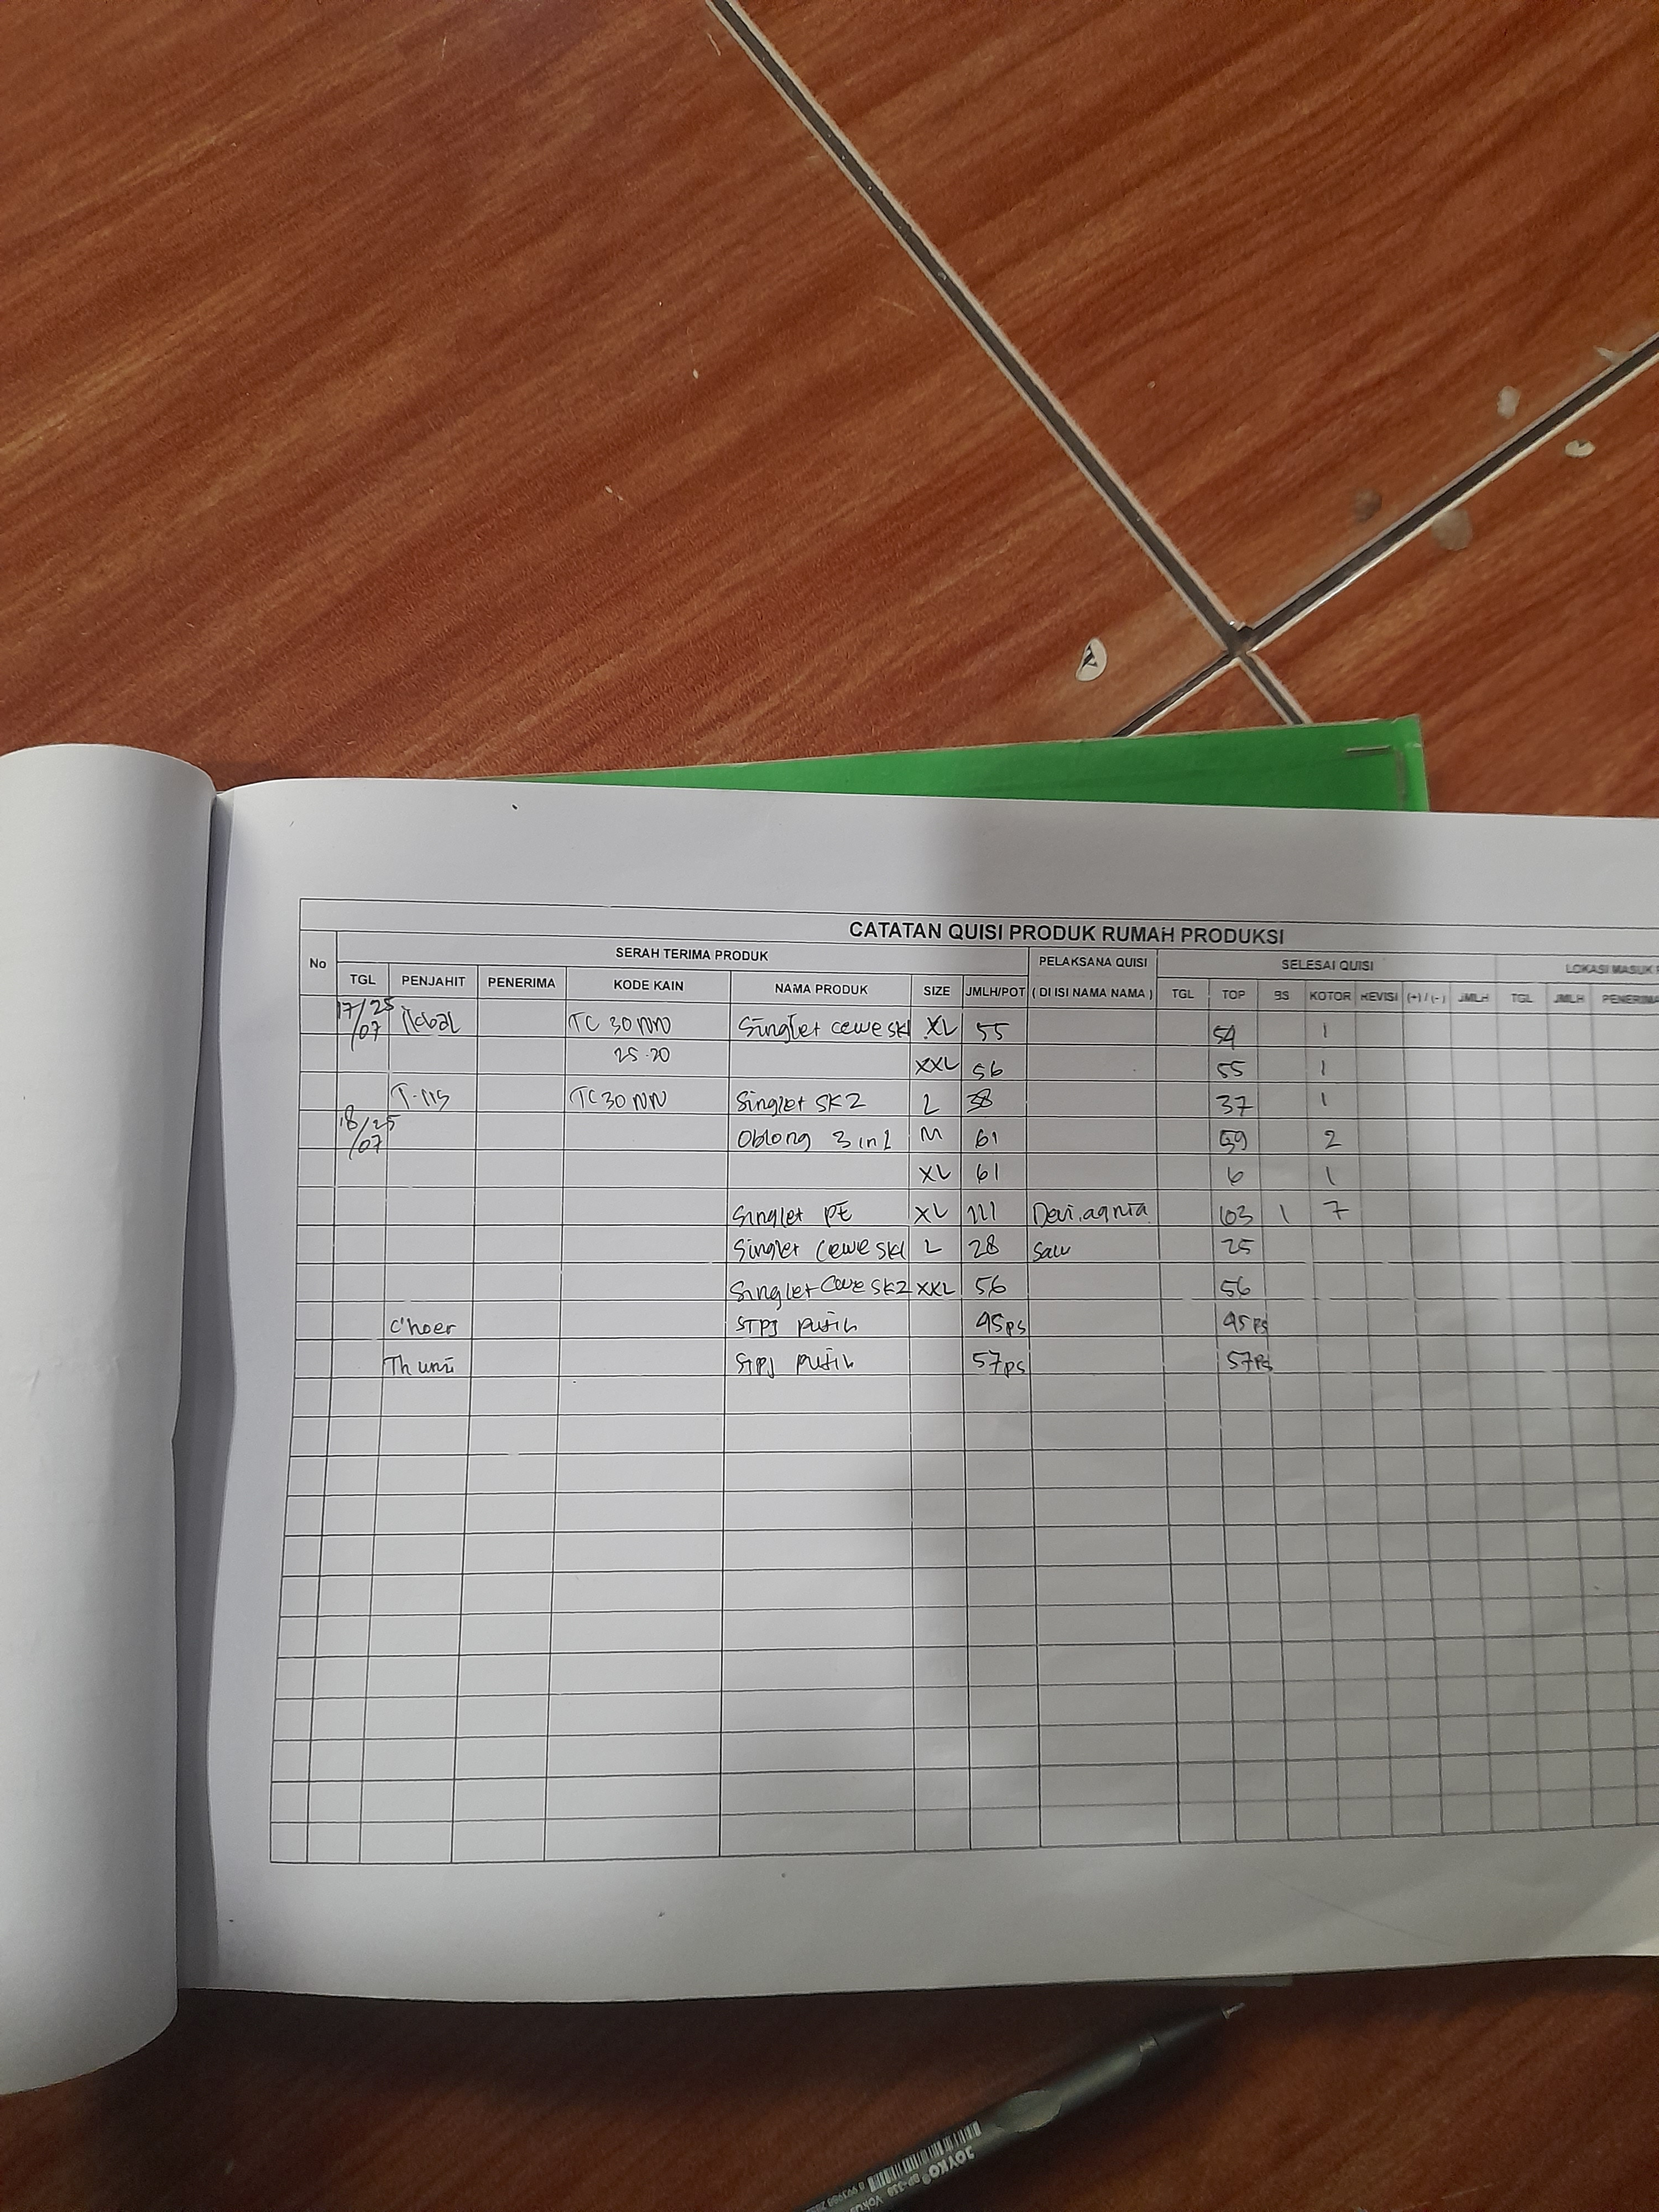 CATATAN QUISI PRODUK RUMAH PRODUKSI
No SERAH TERIMA PRODUK PELAKSANA QUISI SELESAI QUISI LOKASI MASUK
TGL PENJAHIT PENERIMA KODE KAIN NAMA PRODUK SIZE JMLH/POT ( DI ISI NAMA NAMA ) TGL TOP BS KOTOR REVISI (+) / (-) JMLH TGL JMLH PENERIMA
17/25/07 TC 30 NN Singlet cewe sk1 XL 55 54 1
25-20 XXL 56 55 1
TC 30 NN Singlet SK2 L 38 37 1
18/25/07 Oblong 3 in 1 M 61 59 2
XL 61 6 1
Singlet PE XL 111 Devi.agnia 103 1 7
Singlet Cewe sk1 L 28 25
Singlet Cewe SK2 XXL 56 56
c'hoer STPJ putih 45ps 45ps
STPJ putih 57ps 57ps
JOYKO BP-338